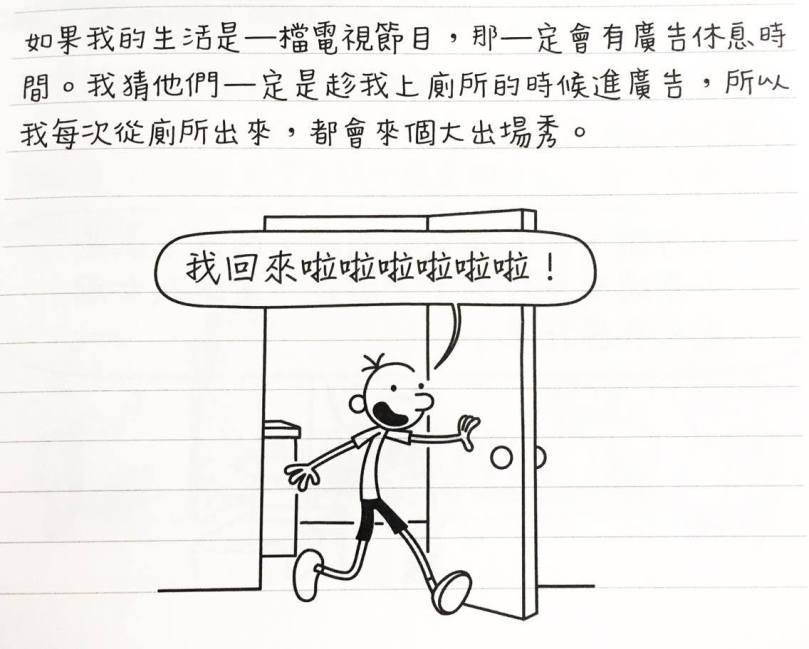 如果我的生活是一檔電視節目，那一定會有廣告休息時
間。我猜他們一定是趁我上廁所的時候進廣告，所以
我每次從廁所出來，都會來個大出場秀。
我回來啦啦啦啦啦啦！